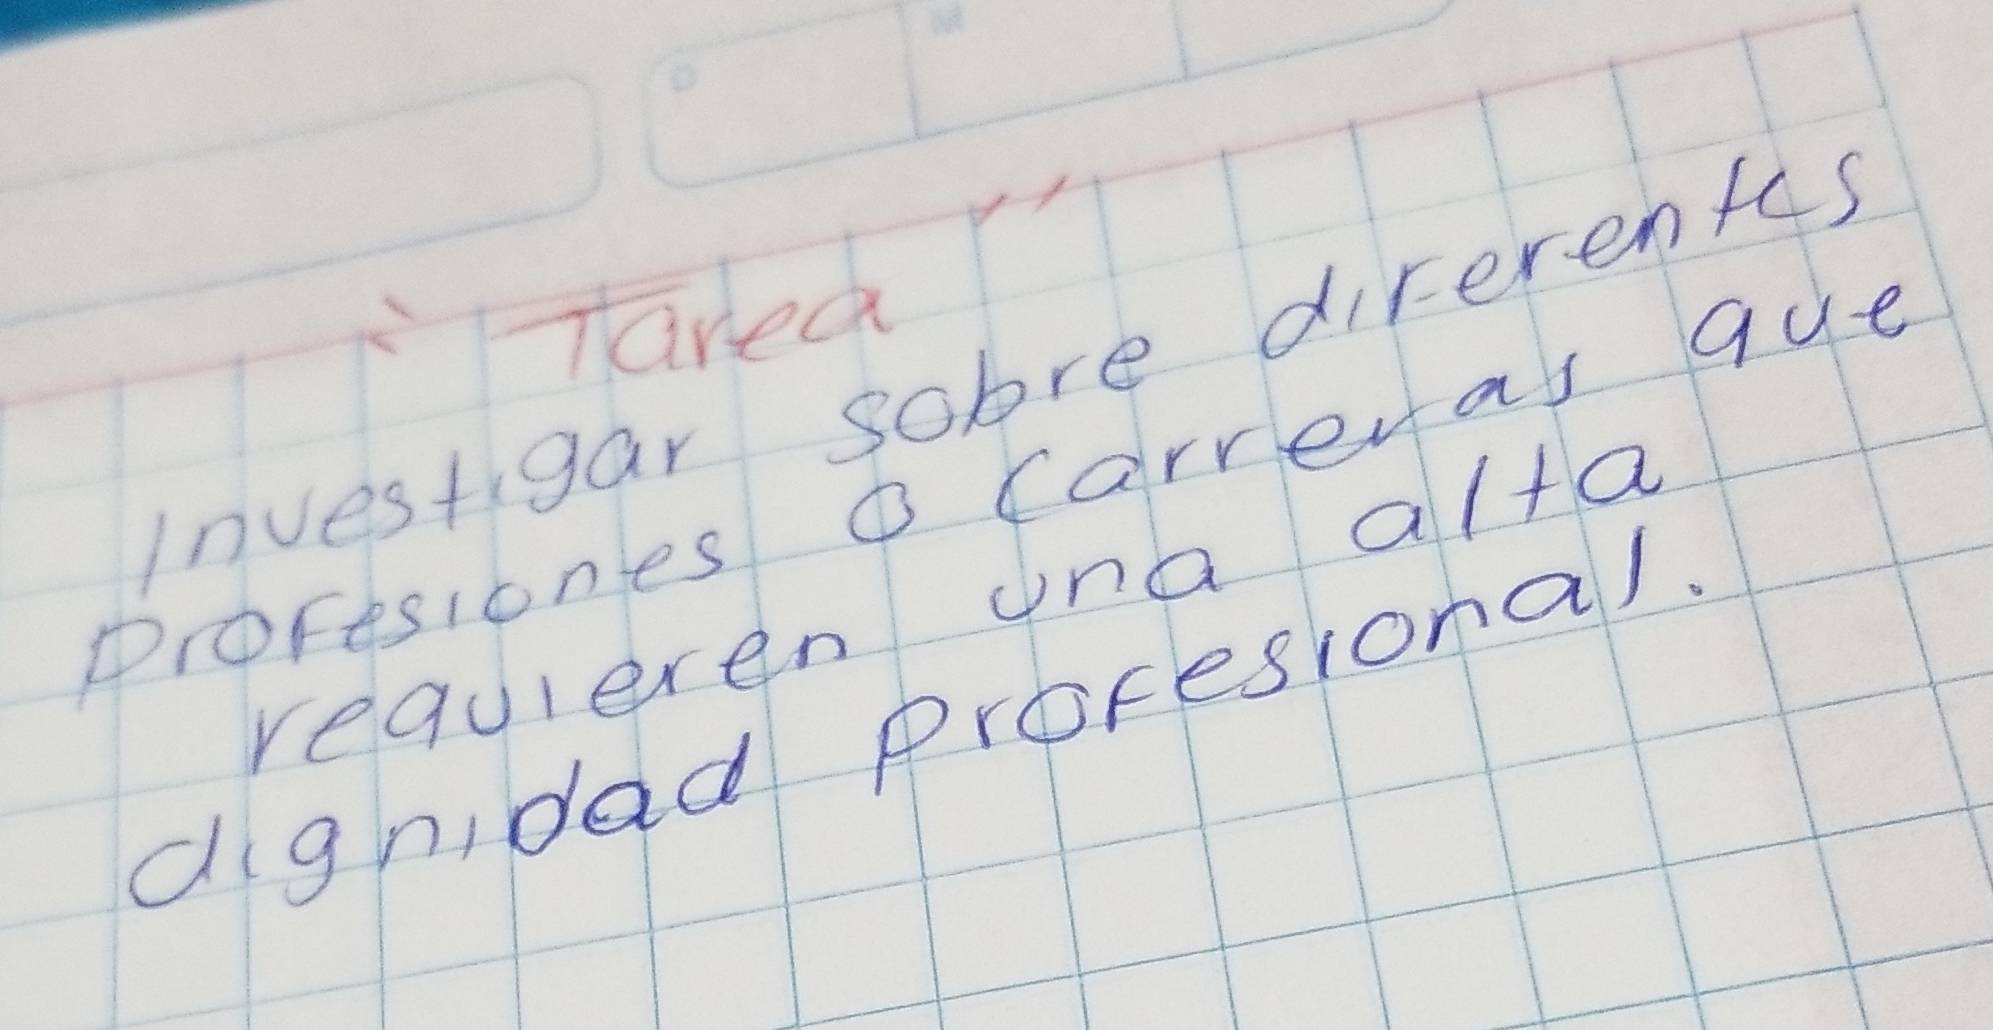 D M
Tarea
Investigar sobre diferentes
profesiones o carreras que
requieren una alta
dignidad profesional.